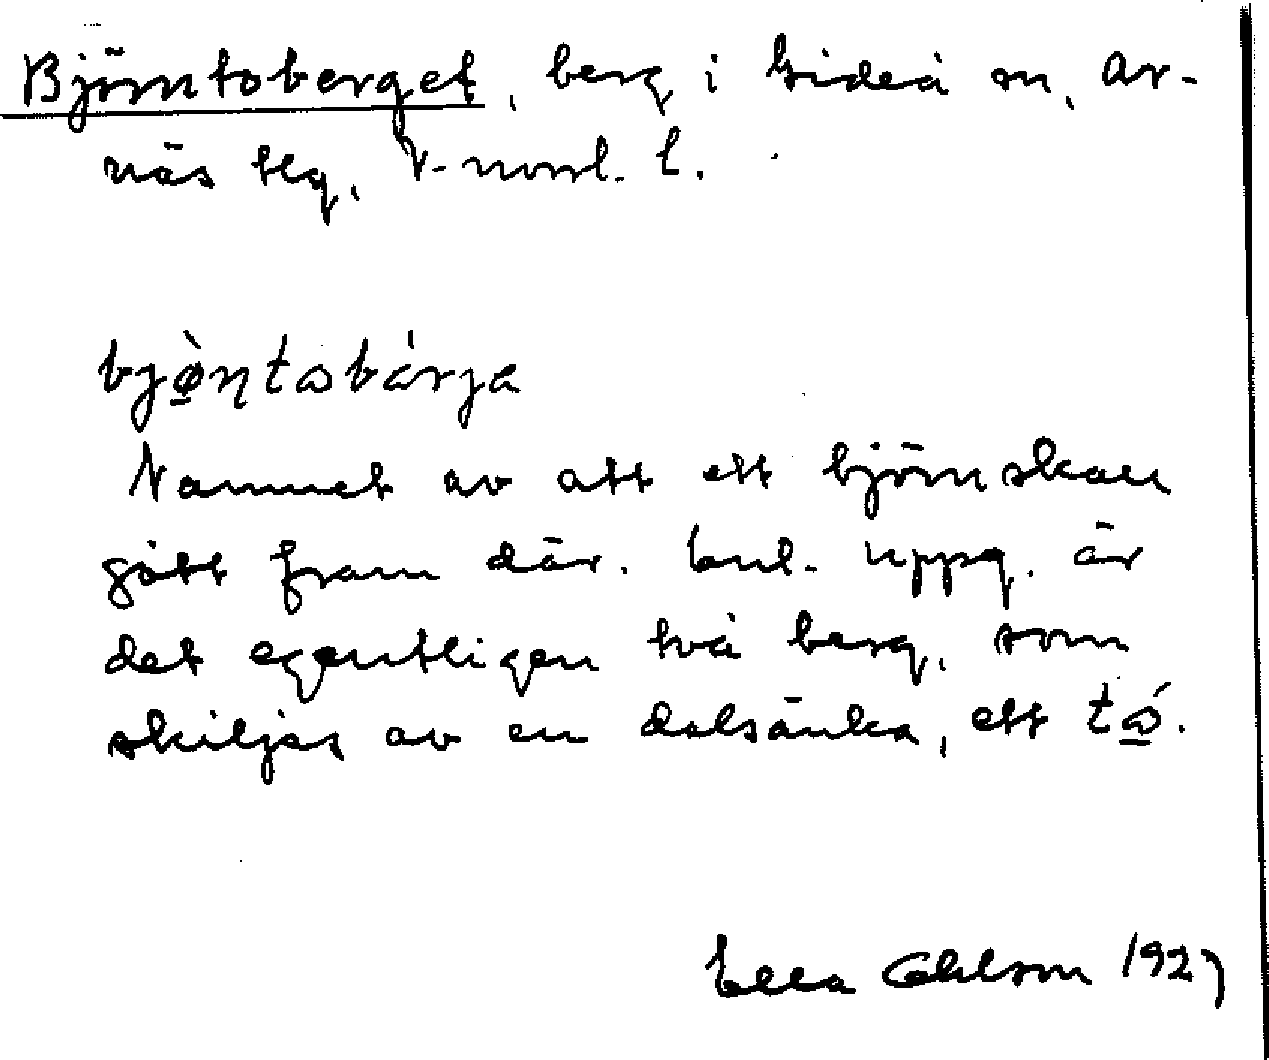 Björntoberget, berg i Gideå sn, Ar-
näs tlg, V-norrl. l.
bjø̠̀ɳtωbárja
Namnet av att ett björnskall
gått fram där. Enl. uppg. är
det egentligen två berg, som
skiljes av en dalsänka, ett tώ̠.
Ella Ohlson 1927